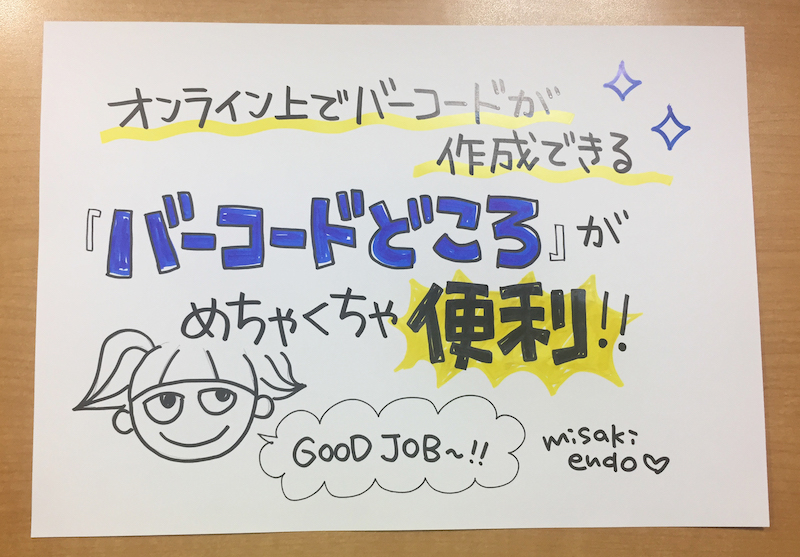 オンライン上でバーコードが
作成できる
『バーコードどころ』が
めちゃくちゃ便利!!
GOOD JOB〜!!
misaki
endo♡